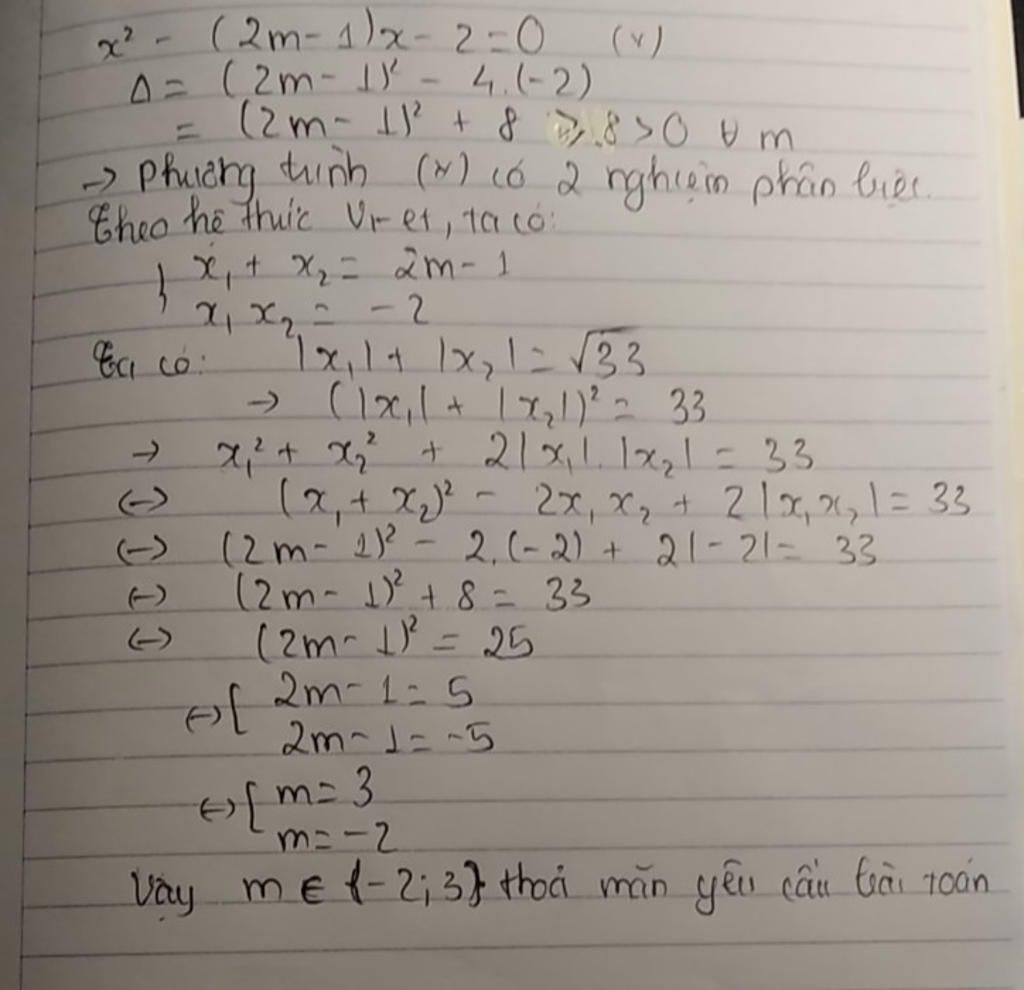 x² - (2m - 1)x - 2 = 0 (*)
Δ = (2m - 1)² - 4.(-2)
= (2m - 1)² + 8 ≥ 8 > 0 ∀ m
→ Phương trình (*) có 2 nghiệm phân biệt.
Theo hệ thức Vi-et, ta có:
{ x₁ + x₂ = 2m - 1
x₁ x₂ = -2
Ta có: |x₁| + |x₂| = √33
→ (|x₁| + |x₂|)² = 33
→ x₁² + x₂² + 2|x₁|.|x₂| = 33
↔ (x₁ + x₂)² - 2x₁x₂ + 2|x₁x₂| = 33
↔ (2m - 1)² - 2.(-2) + 2|-2| = 33
↔ (2m - 1)² + 8 = 33
↔ (2m - 1)² = 25
↔ [ 2m - 1 = 5
2m - 1 = -5
↔ [ m = 3
m = -2
Vậy m ∈ {-2; 3} thoả mãn yêu cầu bài toán